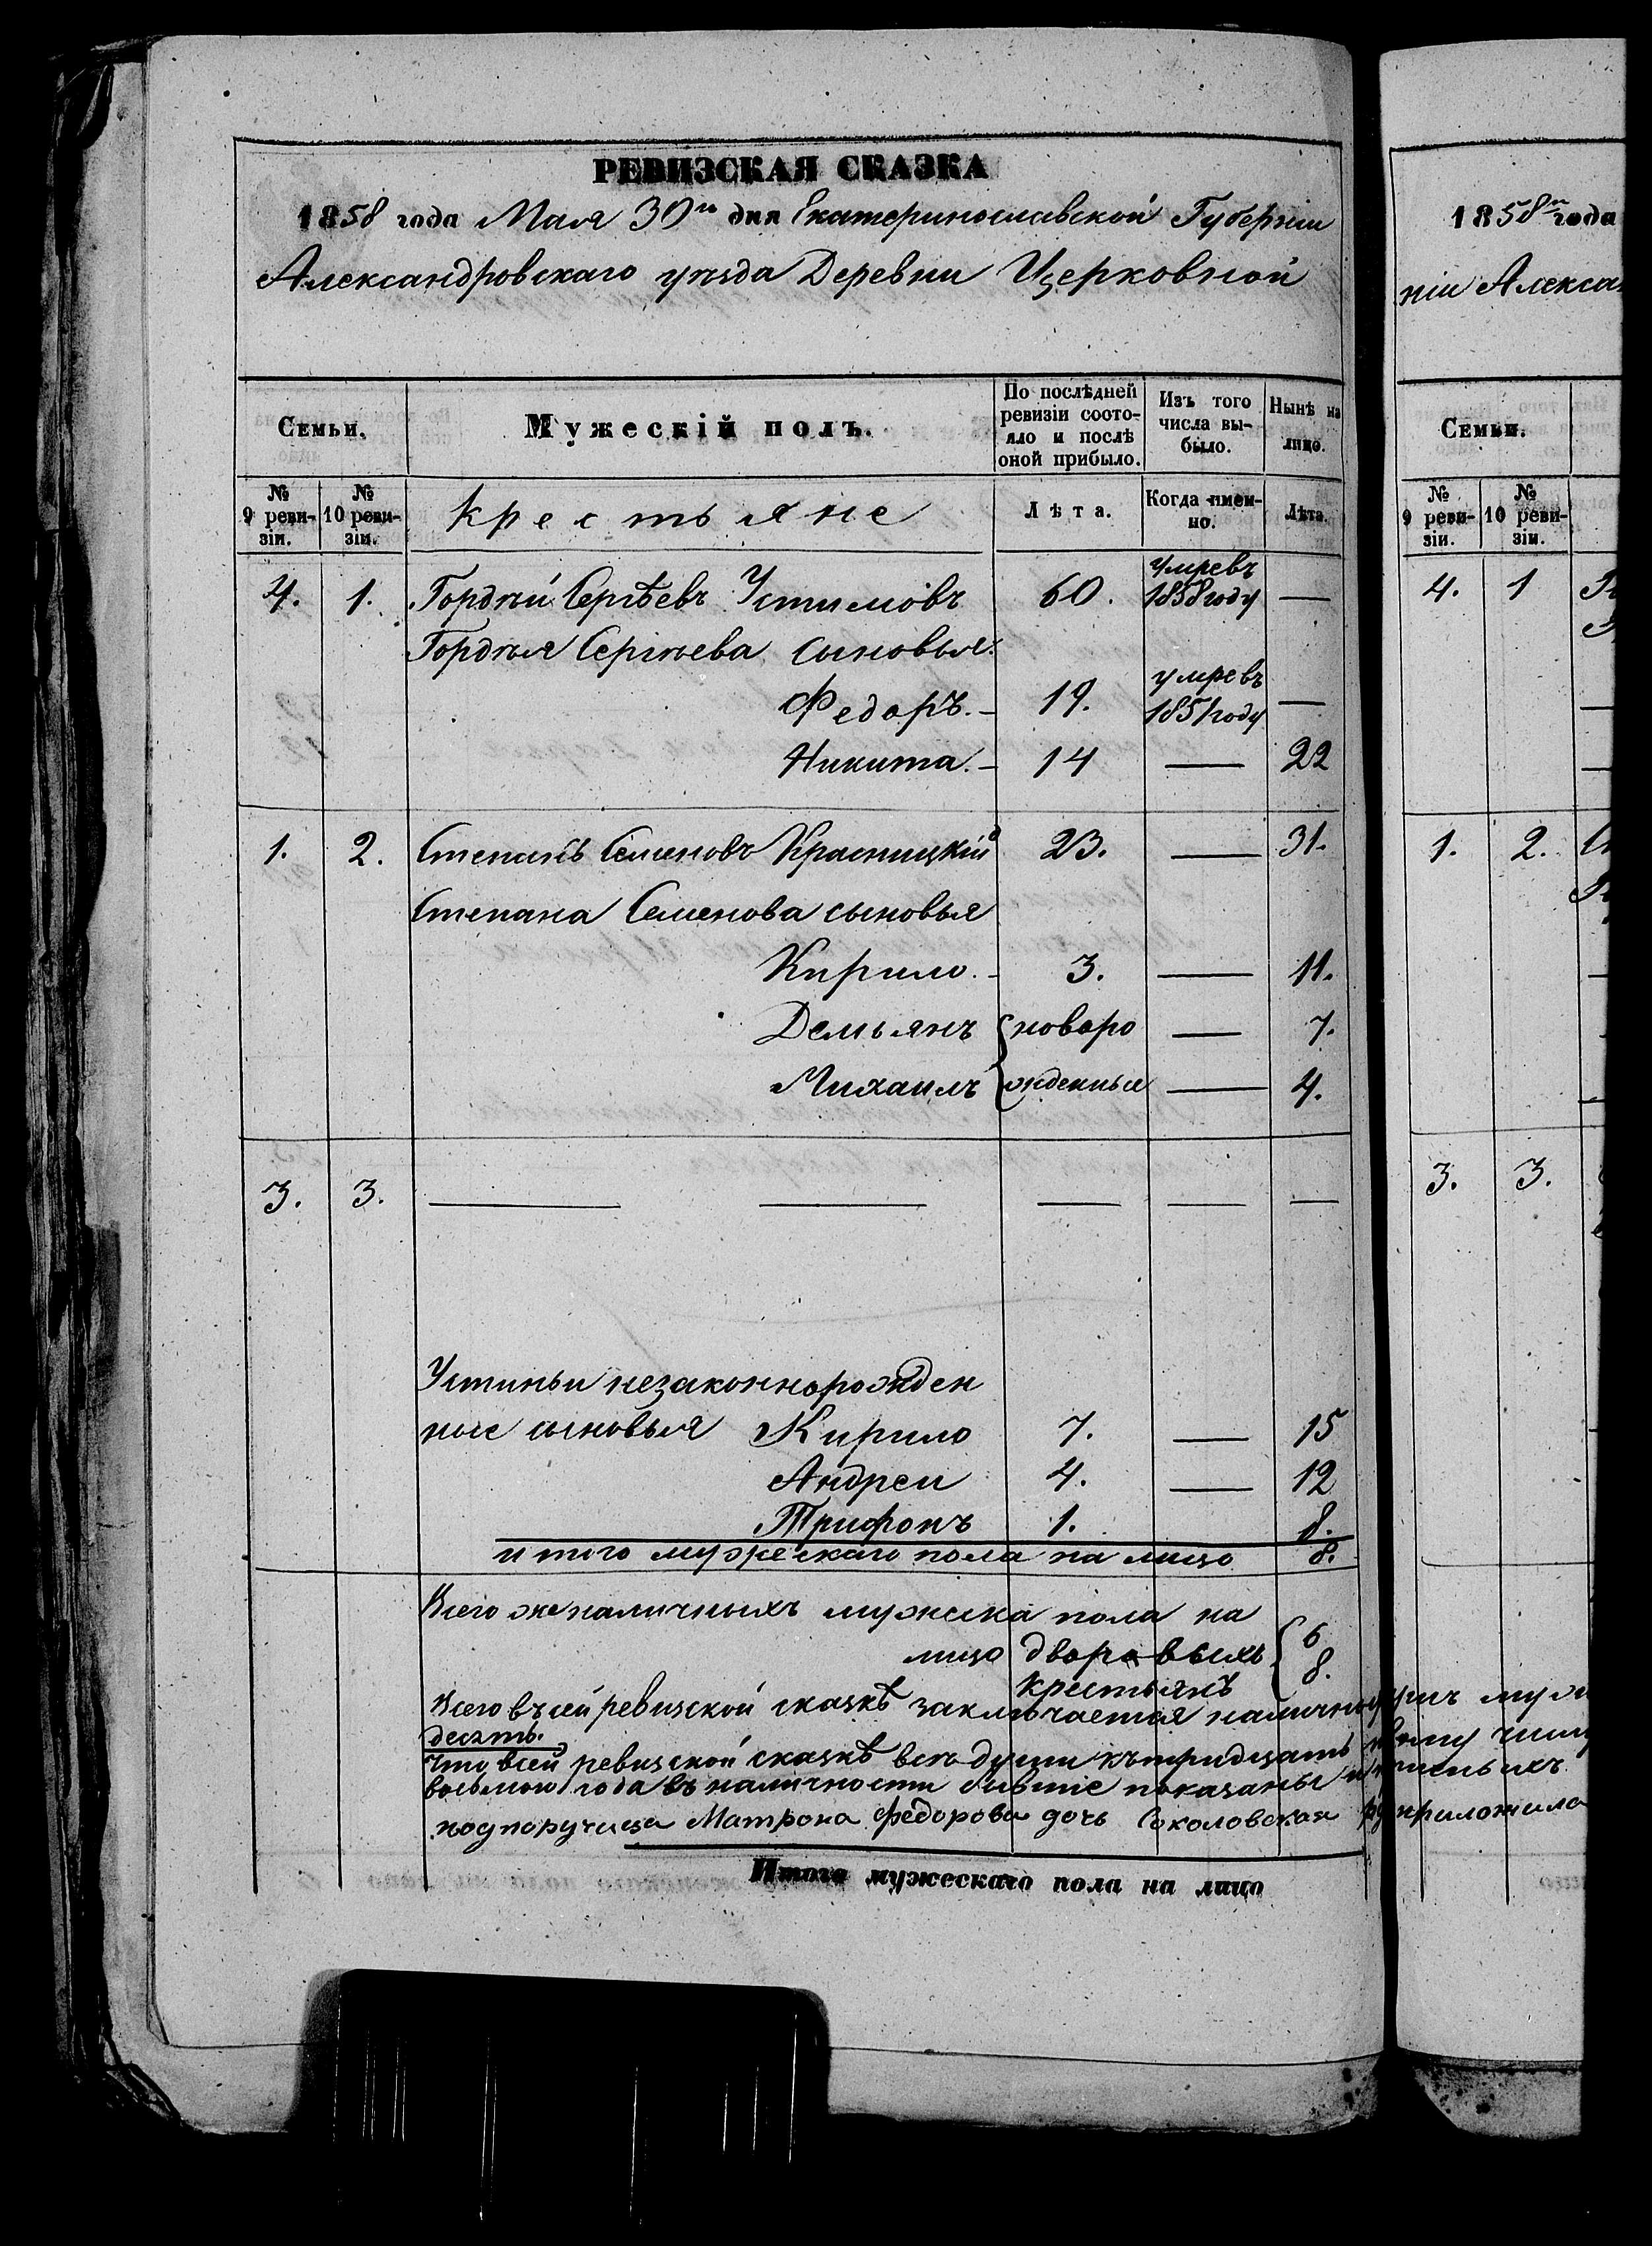 РЕВИЗСКАЯ СКАЗКА
1858 года Мая 30го дня Екатеринославской Губерніи
Александровскаго уѣзда Деревни Церковной
Семьи.
Мужескій полъ.
По послѣдней ревизіи состояло и послѣ оной прибыло.
Изъ того числа выбыло.
Нынѣ на лицо.
№ 9 ревизіи.
№ 10 ревизіи.
Крестьяне
Лѣта.
Когда именно.
Лѣта.
4. 1. Гордѣй Сергѣевъ Устимовъ 60. умревъ 1858 году —
Гордѣя Сергѣева сыновья:
Федоръ. — 19. умревъ 1851 году —
Никита. — 14 — 22
1. 2. Степанъ Семеновъ Красницкій 23. — 31.
Степана Семенова сыновья
Кирило. — 3. — 11.
Демьянъ новоро — 7.
Михаилъ жденные — 4.
3. 3. — — — — —
Устиньи незаконнорожден
ные сыновья Кирило 7. — 15
Андреи 4. — 12
Трифонъ 1. 8.
итого мужескаго пола на лицо 8.
Всего же наличныхъ мужеска пола на
лицо дворовыхъ 6
крестьянъ 8.
Всего въ сей ревизской сказкѣ заключается
десять.
Что, въ сей ревизской сказкѣ всѣ души къ тридцать
восьмого года въ наличности бывшіе показаны
подпоручица Матрона Федорова дочь Соколовская
Итого мужескаго пола на лицо
1858го года
ніи Алекса
Семьи.
№ 9 ревизіи.
№ 10 ревизіи.
4. 1
1. 2.
3. 3.
приложила